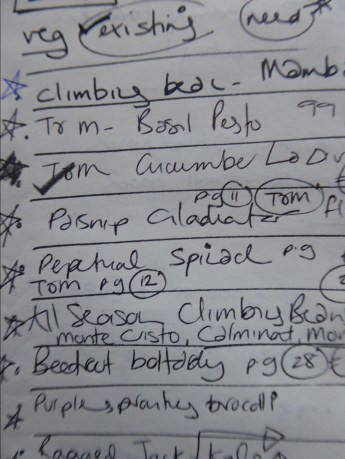 veg existing need
climbing bean - Mamb
Tom - Basil Pesto 99
Tom Cucumbe
pg 11 Tom
Parsnip Gladiator
Perpetual Spicach pg
Tom pg 12
All Season Climbing Bean
monte Cristo, Calminat, Mon
Beetroot boltardy pg 28
Purple sprouting brocoli
Ragged Jack Kale